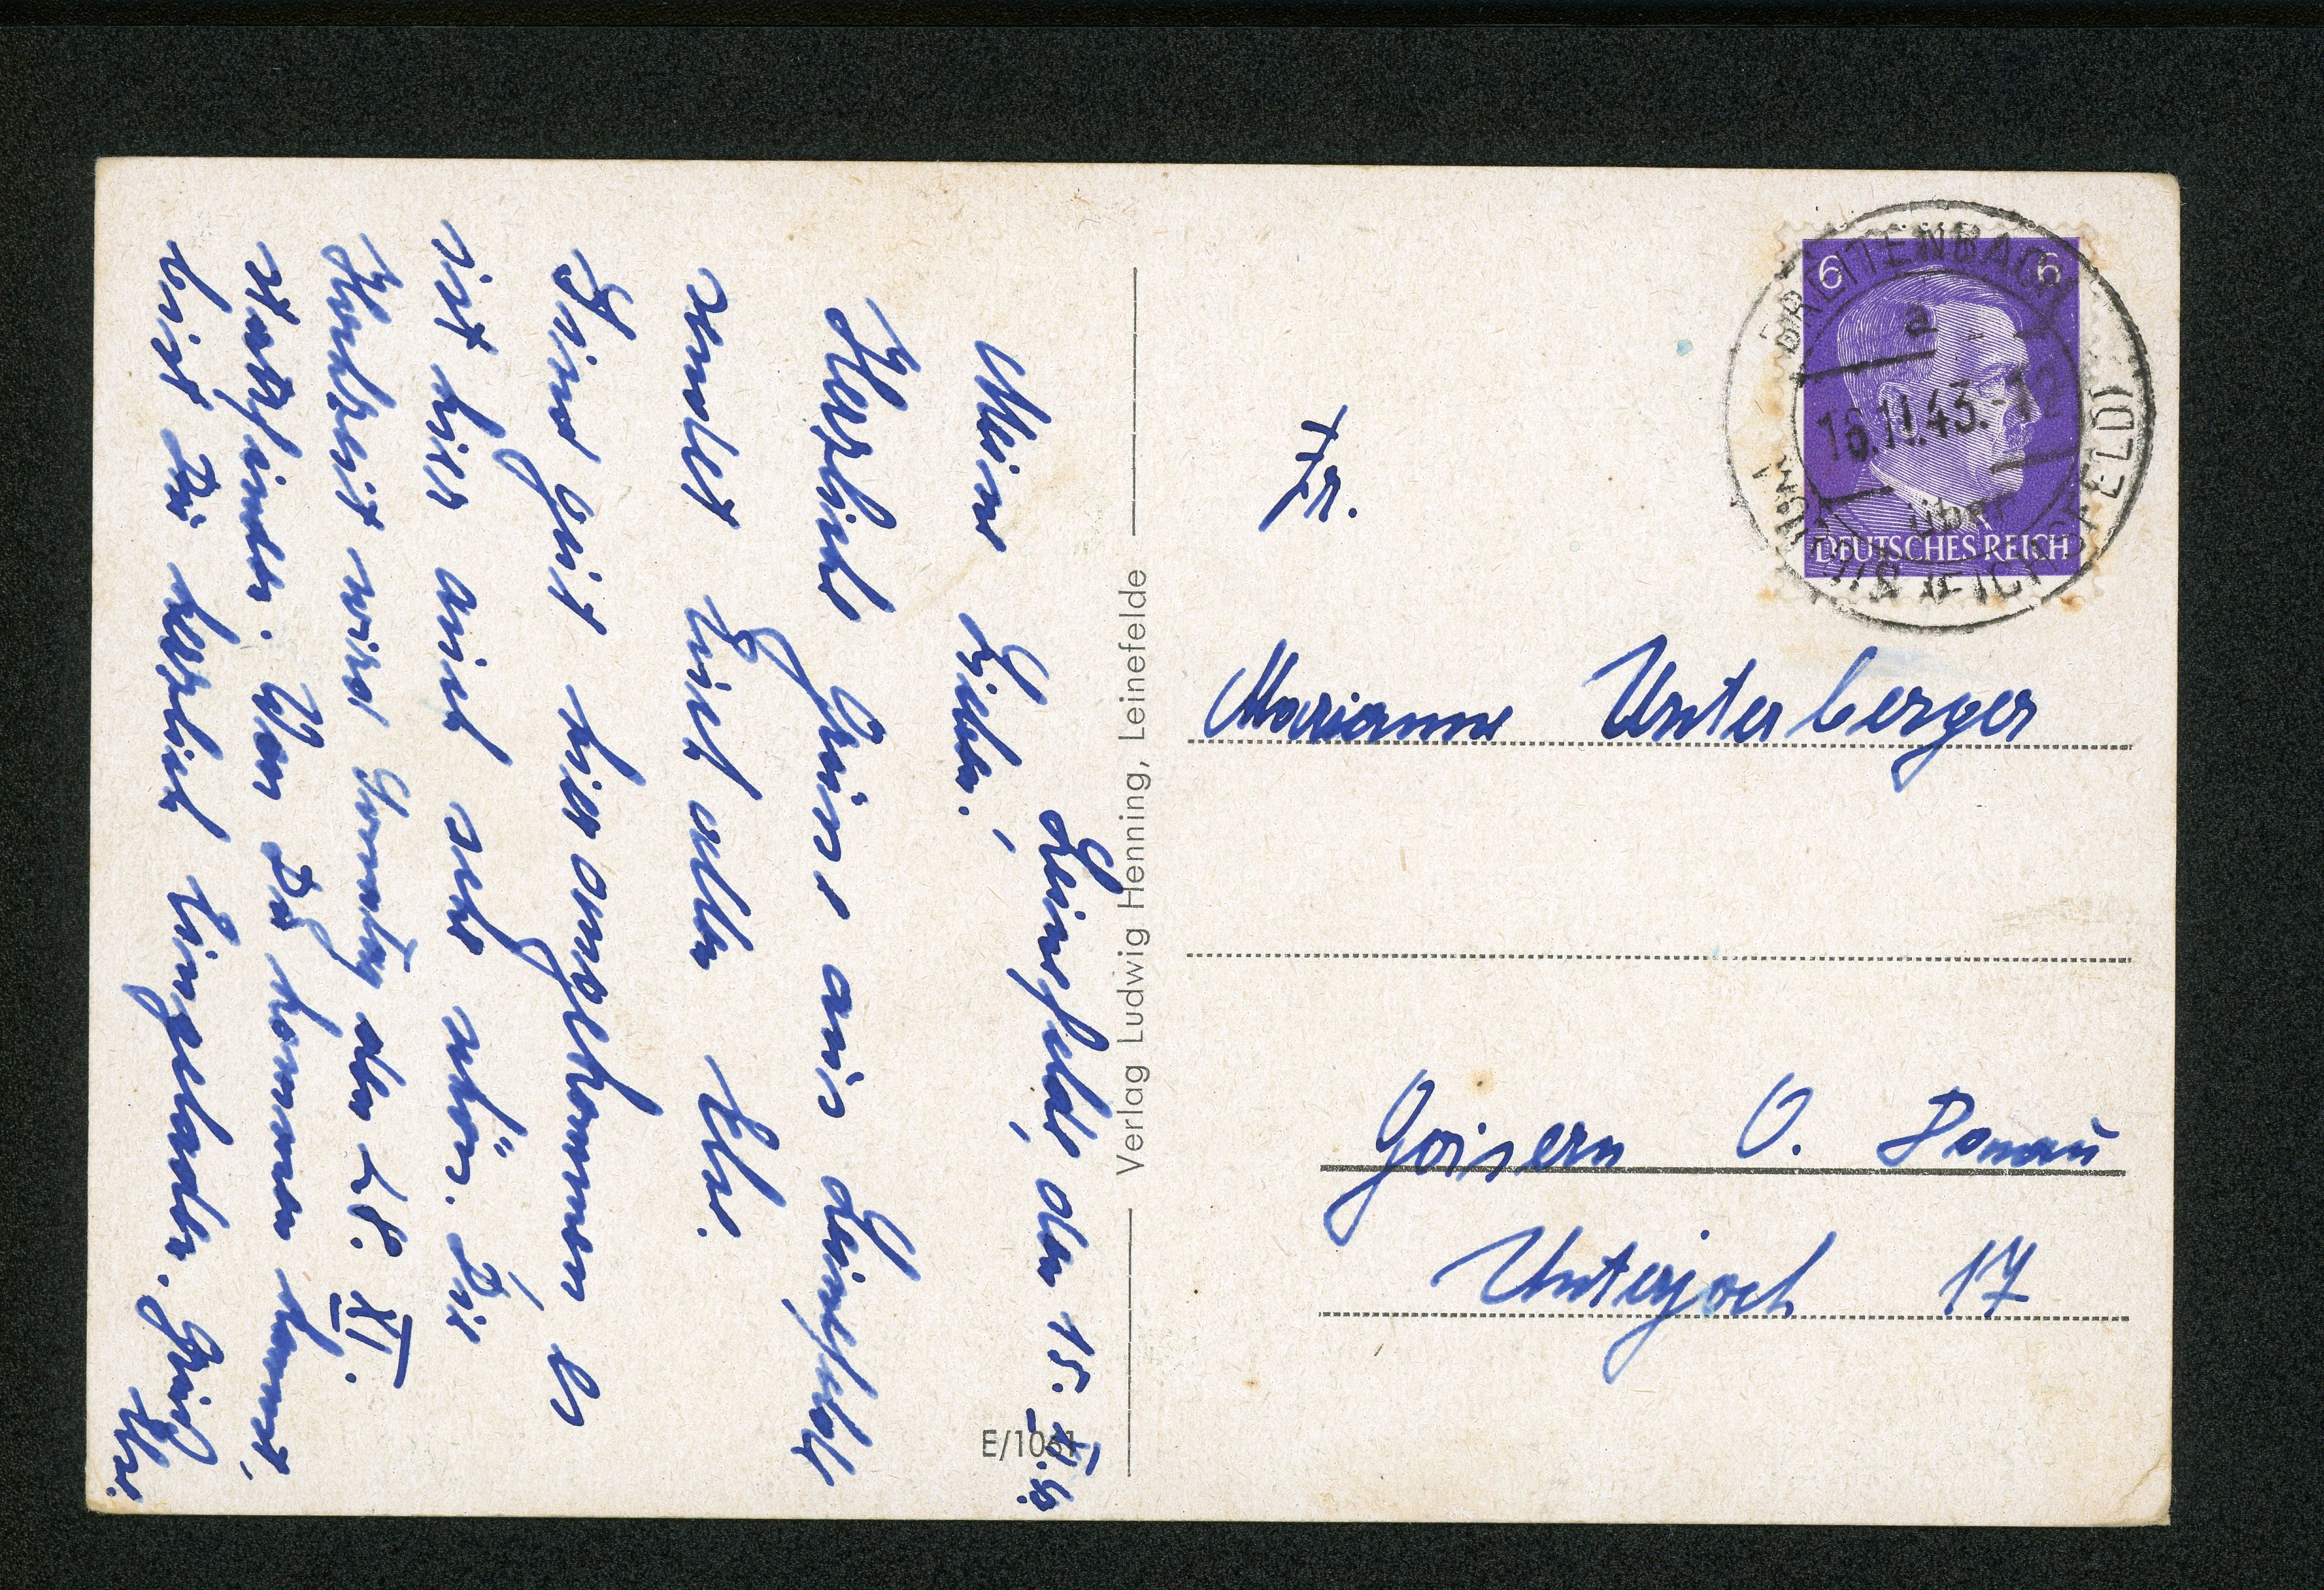 Leinefelde, den 15. XI. 43.
Meine Lieben!
Herzliche Grüsse aus Leinefelde
sendet Euch allen Else.
Sind gut hier angekommen es
ist hier auch sehr schön. Die
Hochzeit wird Sonntag den 28. XI.
stattfinden. Wen Du kommen kannst,
bist Du herzlich Eingeladen. Gruß
Else.
Verlag Ludwig Henning, Leinefelde
E/1061
BREITENBACH
a
16.11.43.-12
über
(EICHSFELD)
6 6
DEUTSCHES REICH
Frl.
Marianne Unterberger
Goisern O. Donau
Unterjoch 17